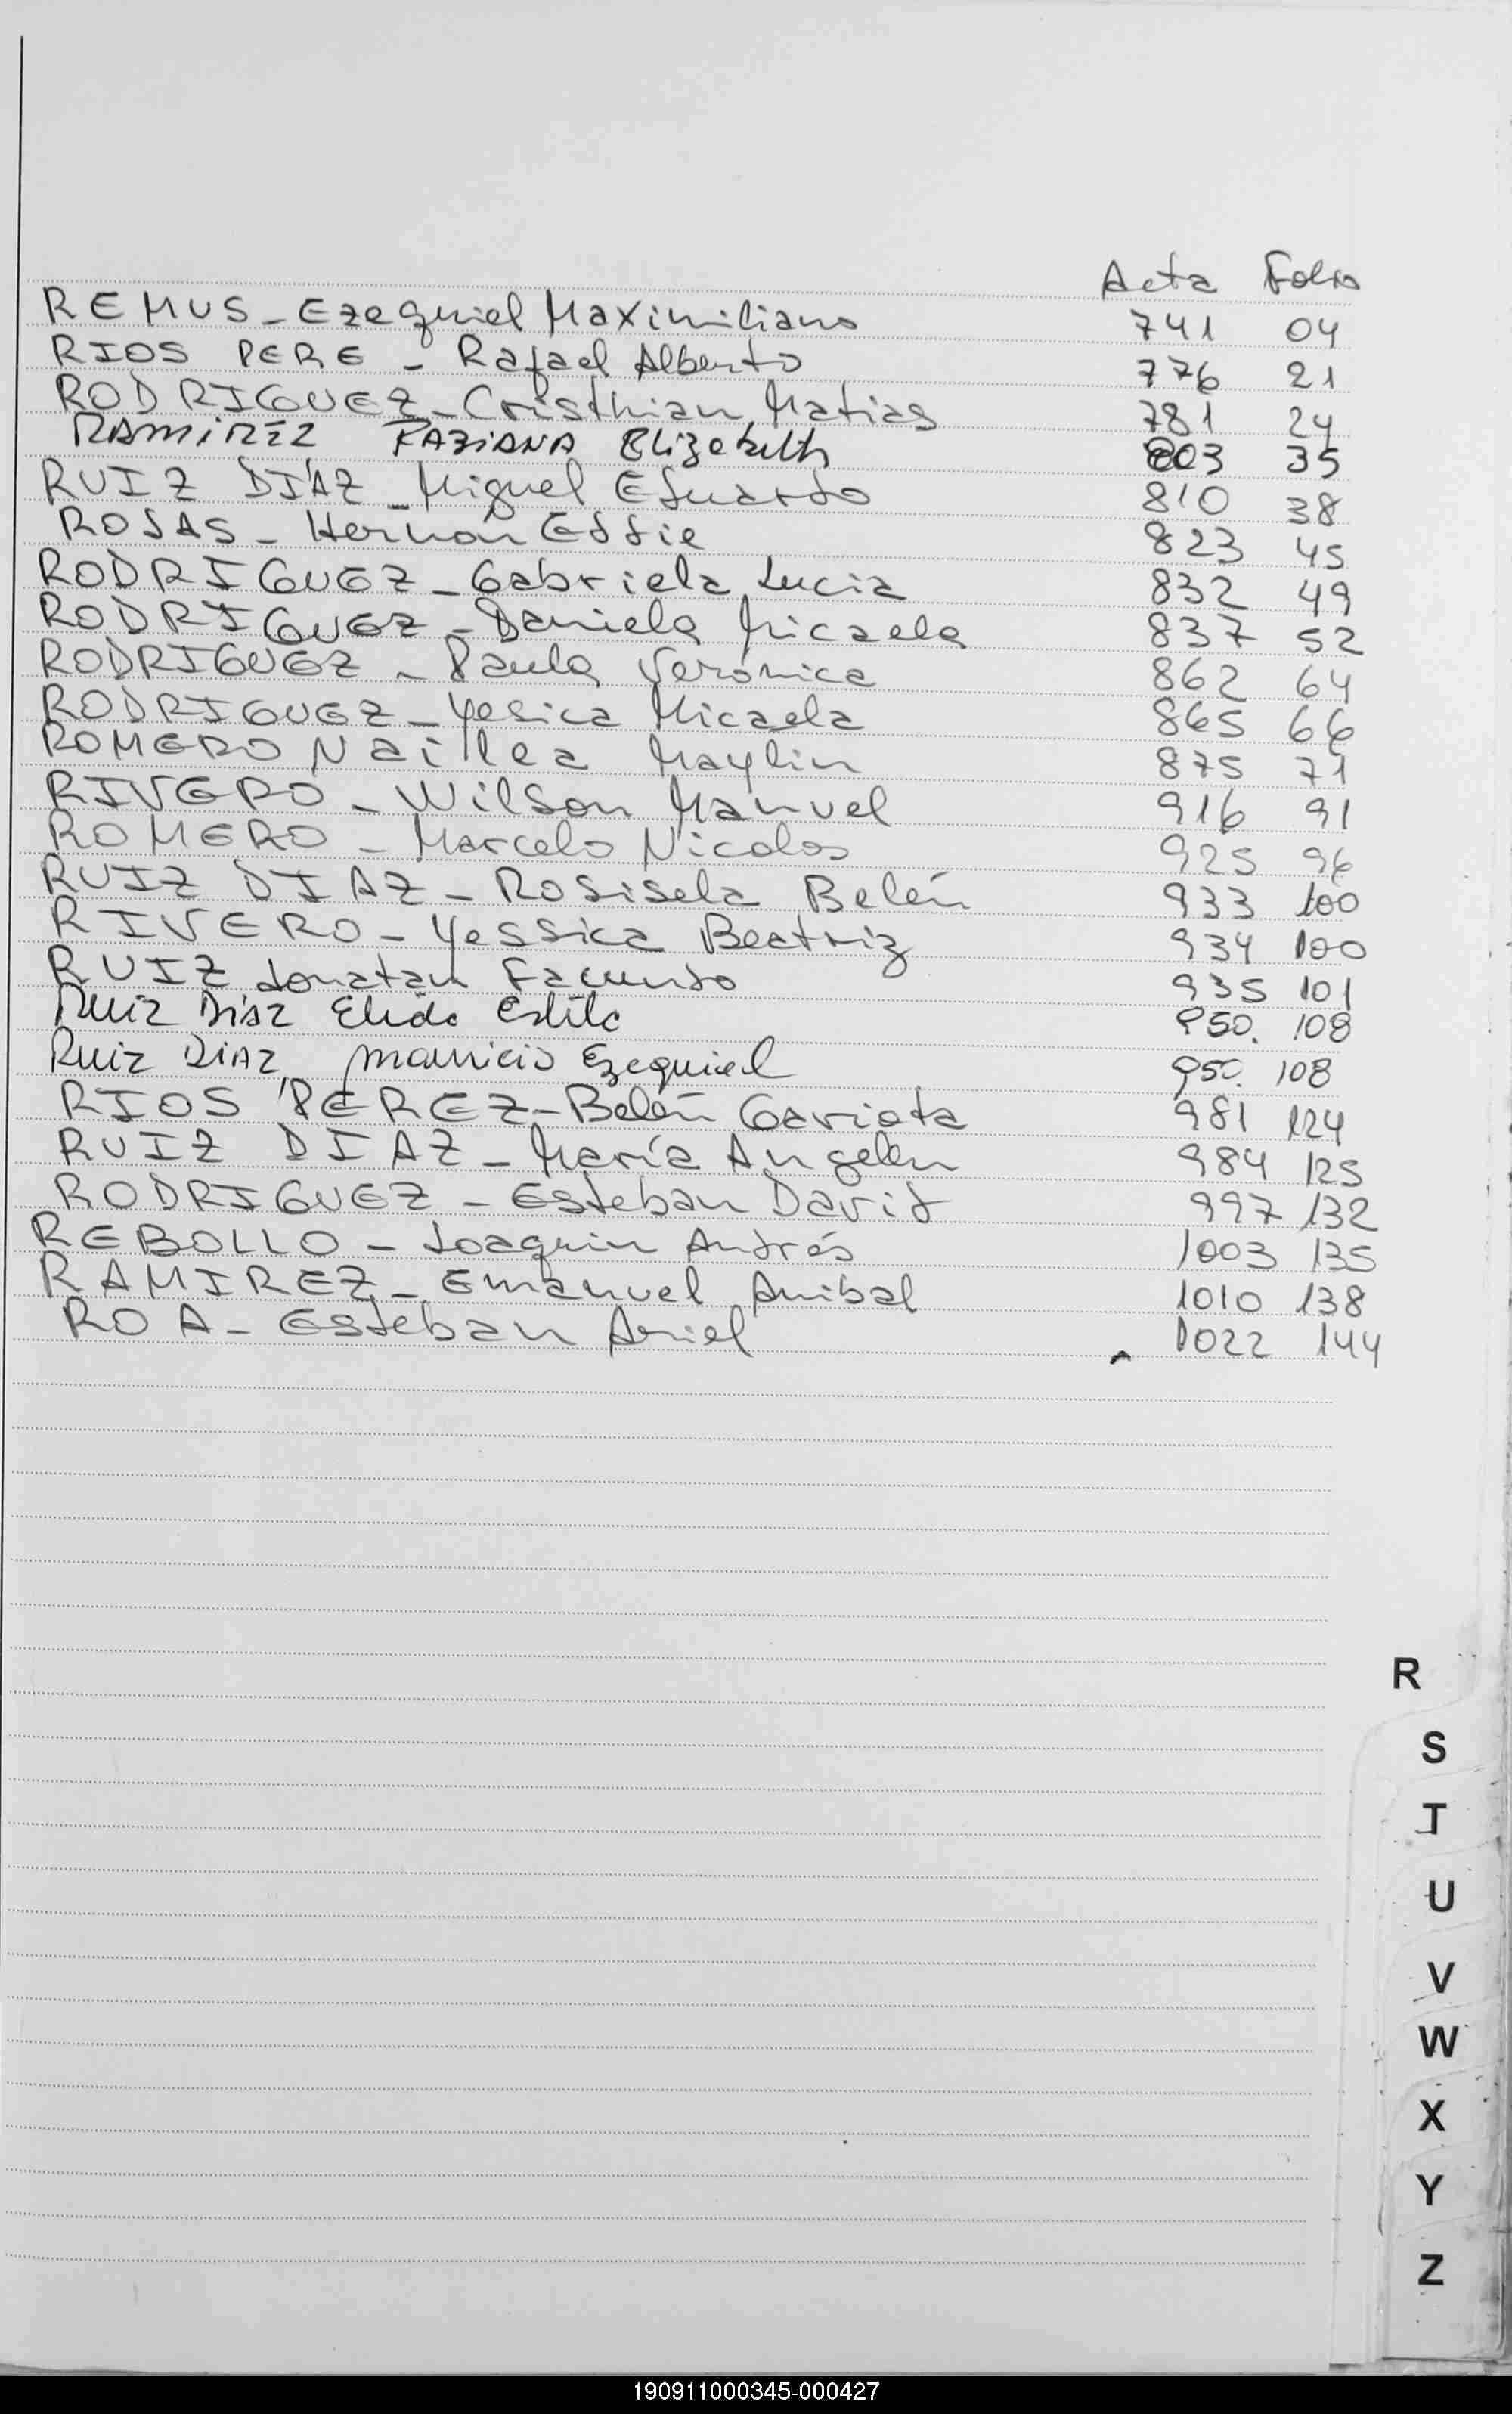 Acta Folio
REMUS - Ezequiel Maximiliano 741 04
RIOS PERE - Rafael Alberto 776 21
RODRIGUEZ - Cristhian Matias 781 24
RAMIREZ Elizabeth 803 35
RUIZ DÍAZ - Miguel Eduardo 810 38
ROSAS - Hernán Eddie 823 45
RODRIGUEZ - Gabriela Lucia 832 49
RODRIGUEZ - Daniela Micaela 837 52
RODRIGUEZ - Paula Verónica 862 64
RODRIGUEZ - Yesica Micaela 865 66
ROMERO Naillea Maylin 875 71
RIVERO - Wilson Manuel 916 91
ROMERO - Marcelo Nicolas 925 96
RUIZ DIAZ - Rosisela Belén 933 100
RIVERO - Yessica Beatriz 934 100
RUIZ Jonatan Facundo 935 101
Ruiz Diaz 950. 108
Ruiz DIAZ Mauricio Ezequiel 950. 108
RIOS PEREZ - Belén 981 124
RUIZ DIAZ - María Angelen 984 125
RODRIGUEZ - Esteban David 997 132
REBOLLO - Joaquin Andrés 1003 135
RAMIREZ - Emanuel Anibal 1010 138
ROA - Esteban Ariel 1022 144
R
S
T
U
V
W
X
Y
Z
190911000345-000427